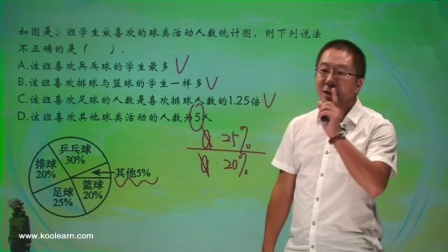 如图是二班学生最喜欢的球类活动人数统计图，则下列说法
不正确的是（ ）.
A.该班喜欢乒乓球的学生最多
B.该班喜欢排球与篮球的学生一样多
C.该班喜欢足球的人数是喜欢排球人数的1.25倍
D.该班喜欢其他球类活动的人数为5人
a·25%
a·20%
乒乓球
30%
排球
20%
其他5%
篮球
20%
足球
25%
www.koolearn.com